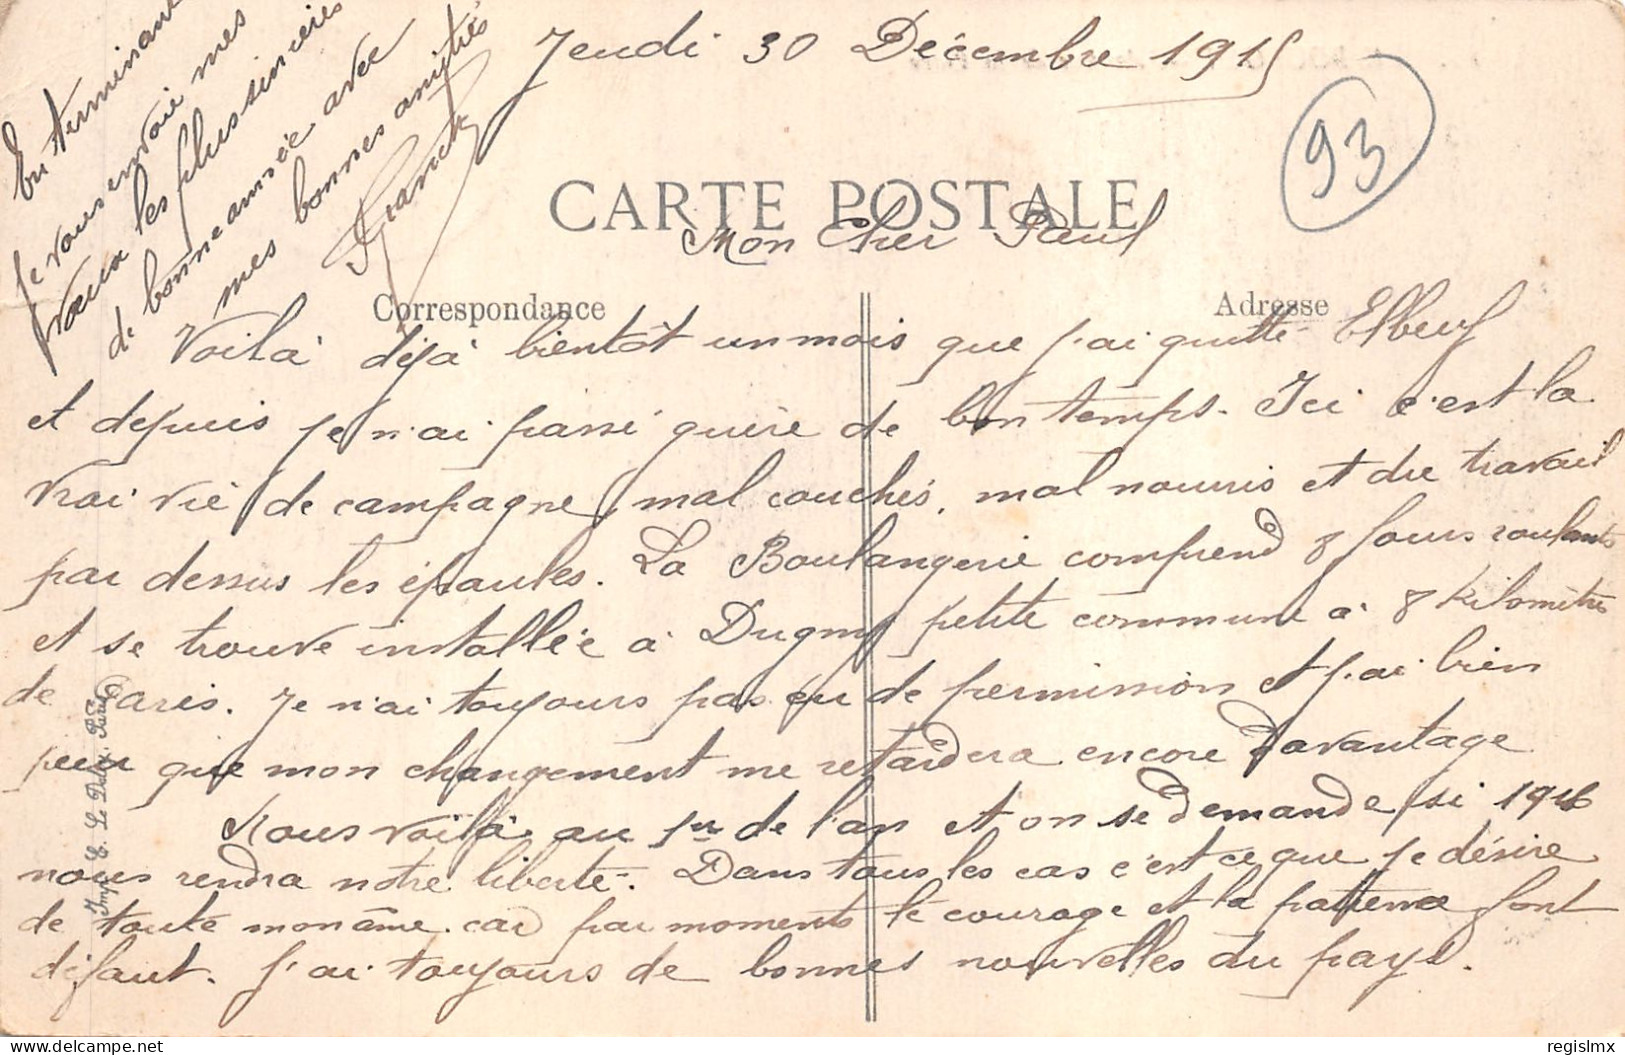 Jeudi 30 Décembre 1915
93
CARTE POSTALE
Mon Cher Paul
Correspondance
Adresse
Voilà déjà bientôt un mois que j'ai quitté Elbeuf
et depuis je n'ai passé guère de bon temps. Ici c'est la
vrai vie de campagne, mal couchés, mal nourris et du travail
par dessus les épaules. La Boulangerie comprend 8 fours roulants
et se trouve installée à Dugny petite commune à 8 kilomètres
de Paris. Je n'ai toujours pas eu de permission et j'ai bien
peur que mon changement me retardera encore davantage
Nous voilà au 1er de l'an et on se demande si 1916
nous rendra notre liberté. Dans tous les cas c'est ce que je désire
de toute mon âme car par moments le courage et la patience font
défaut. J'ai toujours de bonnes nouvelles du pays.
En terminant
je vous envoie mes
vœux les plus sincères
de bonne année avec
mes bonnes amitiés
Imp. E. Le Deley, Paris
delcampe.net
regislmx